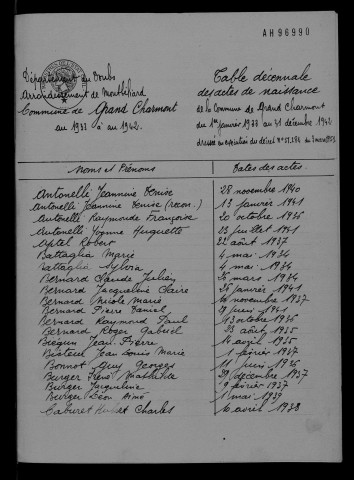 AH96990
Département du Doubs
Arrondissement de Montbéliard
Commune de Grand Charmont
au 1933 à au 1942.
Table décennale
des actes de naissance
de la Commune de Grand Charmont
du 1er janvier 1933 au 31 décembre 1942
dressée en exécution du décret
Noms et Prénoms
Dates des actes
Antonelli Jeannine Denise 28 novembre 1940
Antonelli Jeannine Denise (recon.) 13 janvier 1941
Antonelli Raymonde Françoise 20 octobre 1936
Antonelli Yvonne Huguette 23 juillet 1941
Aptel Robert 22 août 1937
Battaglia Marie 4 mai 1934
Battaglia 4 mai 1934
Bernard Claude Julien mars 1934
Bernard Jacqueline Claire 26 janvier 1941
Bernard Nicole Marie novembre 1937
Bernard Pierre Daniel juin 1941
Bernard Raymond Paul 13 octobre 1936
Bernard Roger Gabriel 23 août 1935
Jean Pierre avril 1935
Jean Louis Marie 1 février 1937
Bonnot Guy Georges juin 1936
Burger René Mathilde 29 décembre 1937
Burger Jacqueline 9 février 1937
Burger Léon Aimé 1 mai 1939
Caburet Charles 6 avril 1938